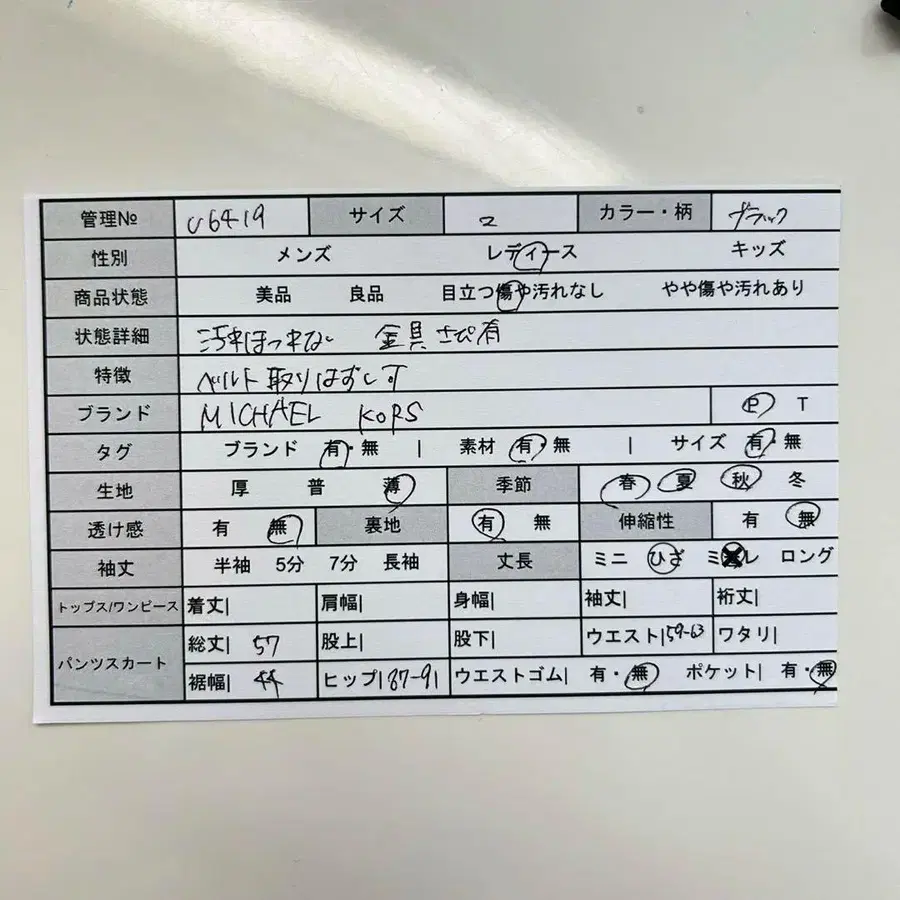 管理№ U6419 サイズ 2 カラー・柄 ブラック
性別 メンズ レディース キッズ
商品状態 美品 良品 目立つ傷や汚れなし やや傷や汚れあり
状態詳細 汚れほつれない 金具さび有
特徴 ベルト取りはずし可
ブランド MICHAEL KORS P T
タグ ブランド 有・無 | 素材 有・無 | サイズ 有・無
生地 厚 普 薄 季節 春 夏 秋 冬
透け感 有 無 裏地 有 無 伸縮性 有 無
袖丈 半袖 5分 7分 長袖 丈長 ミニ ひざ ミモレ ロング
トップス/ワンピース 着丈| 肩幅| 身幅| 袖丈| 裄丈|
パンツスカート 総丈| 57 股上| 股下| ウエスト|59-63 ワタリ|
裾幅| 44 ヒップ|87-91 ウエストゴム| 有・無 ポケット| 有・無